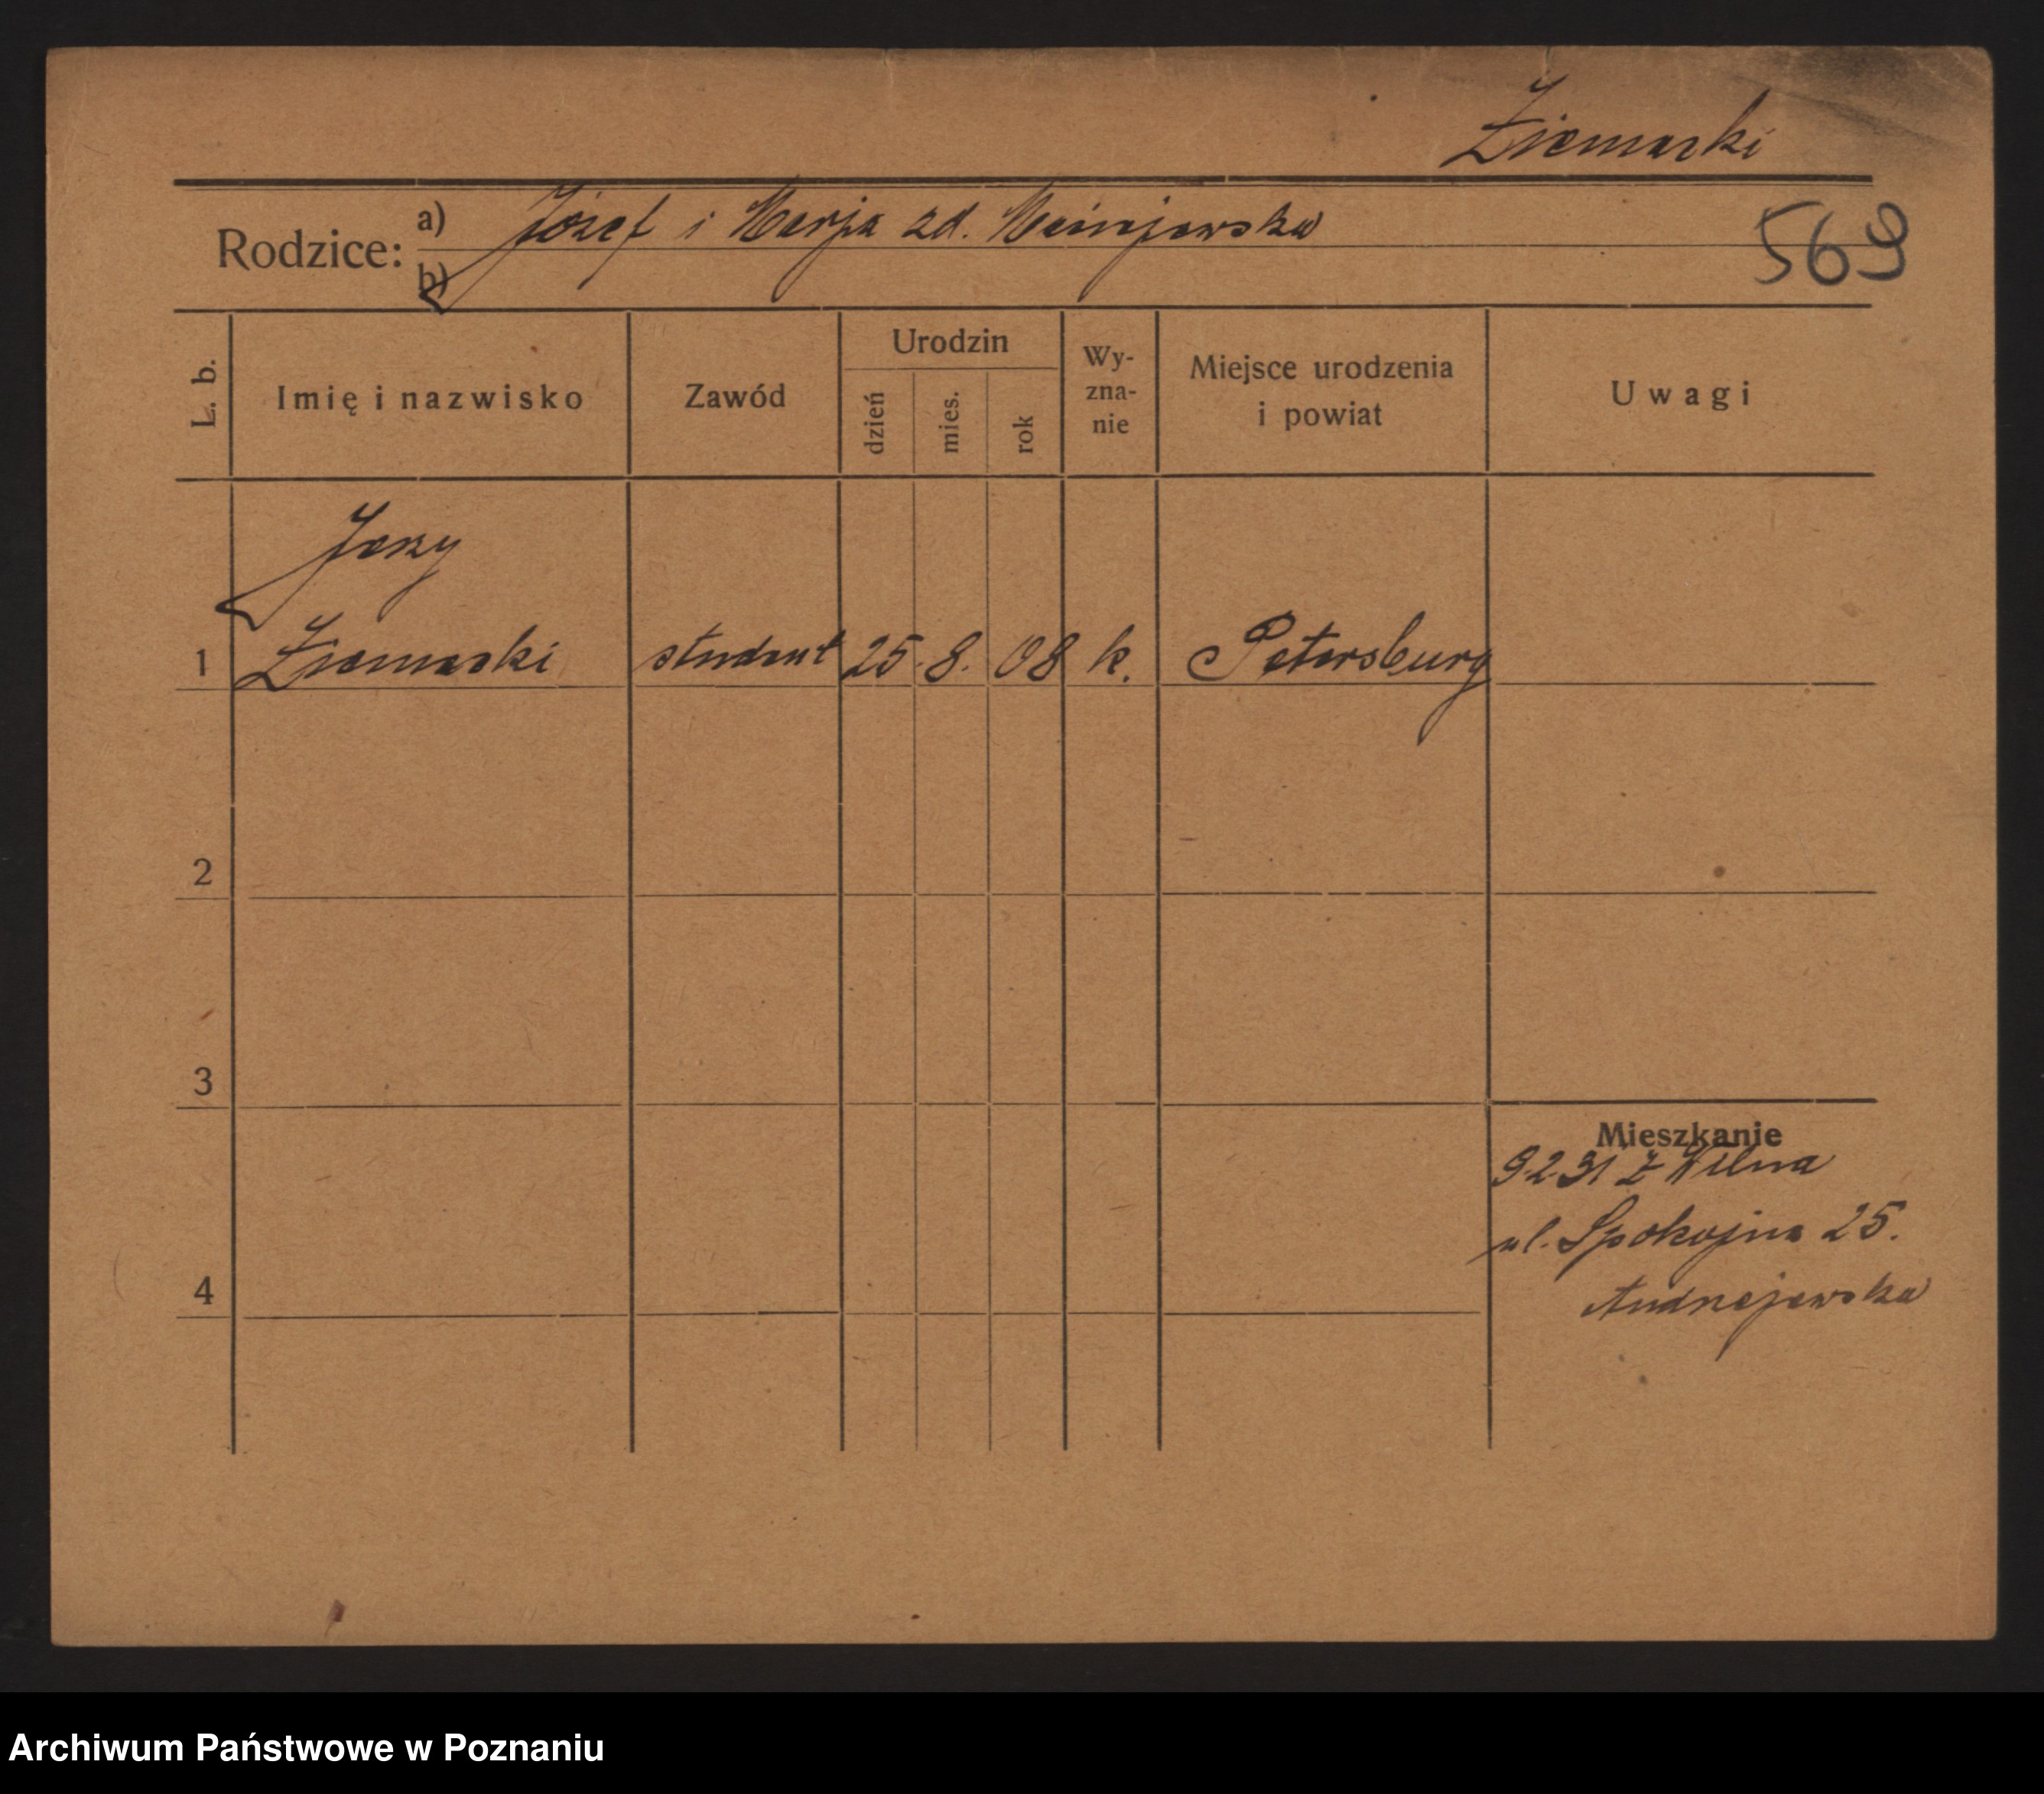 Ziemski
Rodzice: a) Józef i Marja zd.
b)
569
L. b.
Imię i nazwisko
Zawód
Urodzin
dzień
mies.
rok
Wy-
zna-
nie
Miejsce urodzenia
i powiat
Uwagi
Jerzy
1 Ziemski student 25. 8. 08 k. Petersburg
2
3
Mieszkanie
9.2.31 z Wilna
ul. Spokojna 25.
4
Andrzejewska
Archiwum Państwowe w Poznaniu